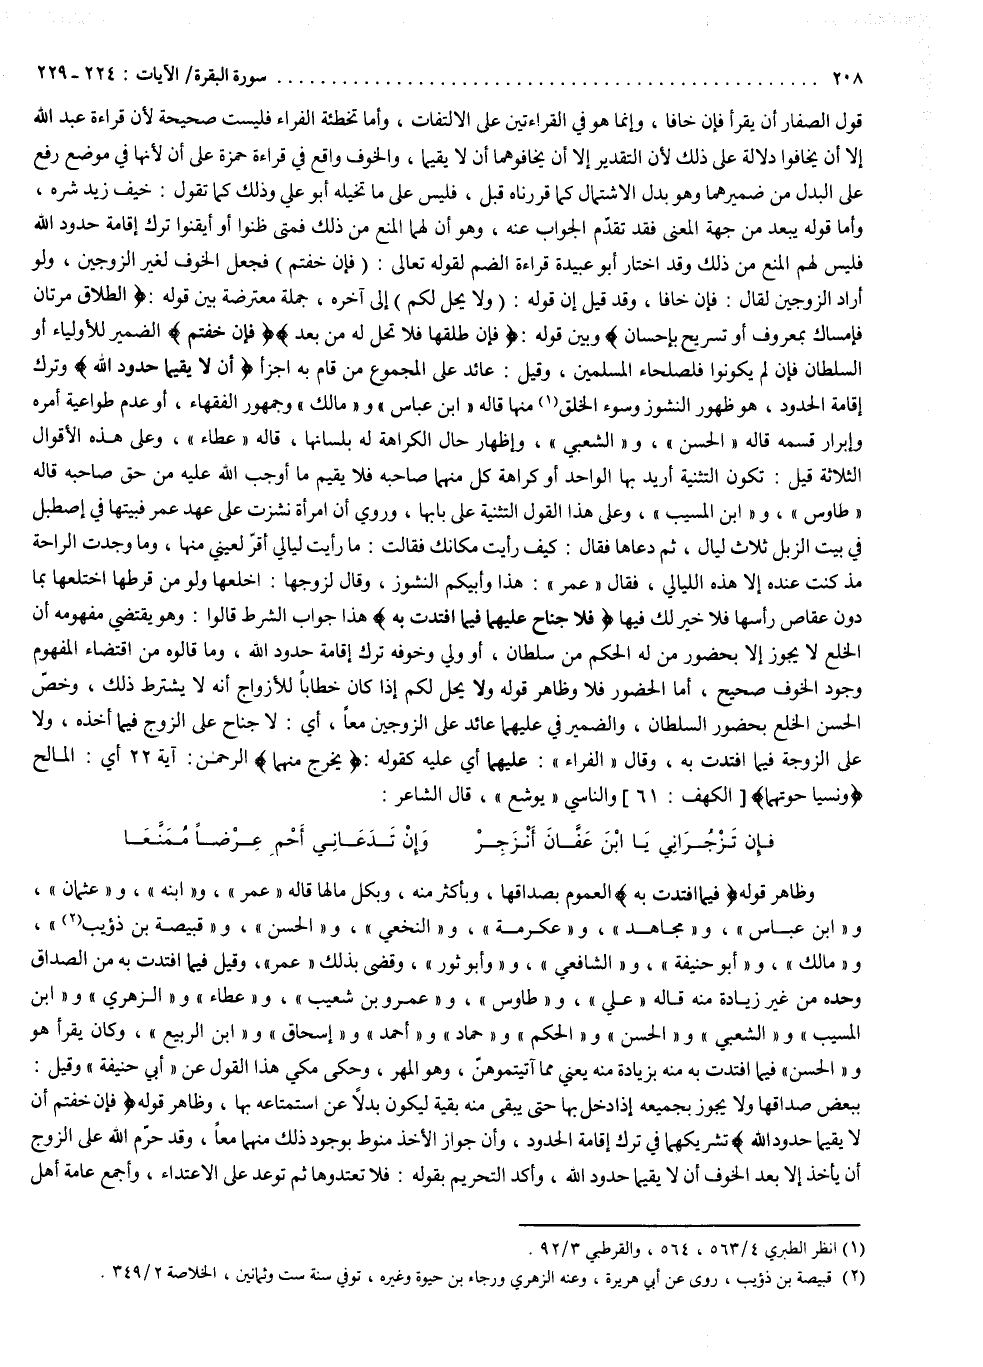 ٢٠٨ ........................................ سورة البقرة/ الآيات : ٢٢٤ ـ ٢٢٩
قول الصفار أن يقرأ فإن خافا ، وإنما هو في القراءتين على الالتفات ، وأما تخطئة الفراء فليست صحيحة لأن قراءة عبد الله
إلا أن يخافوا دلالة على ذلك لأن التقدير إلا أن يخافوهما أن لا يقيما ، والخوف واقع في قراءة حمزة على أن لأنها في موضع رفع
على البدل من ضميرهما وهو بدل الاشتمال كما قررناه قبل ، فليس على ما تخيله أبو علي وذلك كما تقول : خيف زيد شره ،
وأما قوله يبعد من جهة المعنى فقد تقدّم الجواب عنه ، وهو أن لهما المنع من ذلك فمتى ظنوا أو أيقنوا ترك إقامة حدود الله
فليس لهم المنع من ذلك وقد اختار أبو عبيدة قراءة الضم لقوله تعالى : ( فإن خفتم ) فجعل الخوف لغير الزوجين ، ولو
أراد الزوجين لقال : فإن خافا ، وقد قيل إن قوله : ( ولا يحل لكم ) إلى آخره ، جملة معترضة بين قوله :﴿ الطلاق مرتان
فإمساك بمعروف أو تسريح بإحسان ﴾ وبين قوله :﴿ فإن طلقها فلا تحل له من بعد ﴾﴿ فإن خفتم ﴾ الضمير للأولياء أو
السلطان فإن لم يكونوا فلصلحاء المسلمين ، وقيل : عائد على المجموع من قام به اجزأ ﴿ أن لا يقيما حدود الله ﴾ وترك
إقامة الحدود ، هو ظهور النشوز وسوء الخلق(١) منها قاله « ابن عباس » و« مالك » وجمهور الفقهاء ، أو عدم طواعية أمره
وإبرار قسمه قاله « الحسن » ، و« الشعبي » ، وإظهار حال الكراهة له بلسانها ، قاله « عطاء » ، وعلى هذه الأقوال
الثلاثة قيل : تكون التثنية أريد بها الواحد أو كراهة كل منهما صاحبه فلا يقيم ما أوجب الله عليه من حق صاحبه قاله
« طاوس » ، و« ابن المسيب » ، وعلى هذا القول التثنية على بابها ، وروي أن امرأة نشزت على عهد عمر فبيتها في إصطبل
في بيت الزبل ثلاث ليال ، ثم دعاها فقال : كيف رأيت مكانك فقالت : ما رأيت ليالي أقرّ لعيني منها ، وما وجدت الراحة
مذ كنت عنده إلا هذه الليالي ، فقال « عمر » : هذا وأبيكم النشوز ، وقال لزوجها : اخلعها ولو من قرطها اختلعها بما
دون عقاص رأسها فلا خير لك فيها ﴿ فلا جناح عليهما فيما افتدت به ﴾ هذا جواب الشرط قالوا : وهو يقتضي مفهومه أن
الخلع لا يجوز إلا بحضور من له الحكم من سلطان ، أو ولي وخوفه ترك إقامة حدود الله ، وما قالوه من اقتضاء المفهوم
وجود الخوف صحيح ، أما الحضور فلا وظاهر قوله ولا يحل لكم إذا كان خطاباً للأزواج أنه لا يشترط ذلك ، وخصّ
الحسن الخلع بحضور السلطان ، والضمير في عليهما عائد على الزوجين معاً ، أي : لا جناح على الزوج فيما أخذه ، ولا
على الزوجة فيما افتدت به ، وقال « الفراء » : عليهما أي عليه كقوله :﴿ يخرج منهما ﴾ الرحمن: آية ٢٢ أي : المالح
﴿ونسيا حوتهما﴾ [ الكهف : ٦١ ] والناسي « يوشع » ، قال الشاعر :
فَإِن تَزْجُرَانِي يَا ابْنَ عَفَّانَ أَنْزَجِرْ وَإِنْ تَدَعَانِي أَحْمِ عِرْضاً مُمَنَّعَا
وظاهر قوله﴿ فيما افتدت به ﴾ العموم بصداقها ، وبأكثر منه ، وبكل مالها قاله « عمر » ، و« ابنه » ، و« عثمان » ،
و« ابن عباس » ، و« مجاهد » ، و« عكرمة » ، و« النخعي » ، و« الحسن » ، و« قبيصة بن ذؤيب(٢) » ،
و« مالك » ، و« أبو حنيفة » ، و« الشافعي » ، و« وأبو ثور » ، وقضى بذلك « عمر»، وقيل فيما افتدت به من الصداق
وحده من غير زيادة منه قاله « علي » ، و« طاوس » ، و« عمرو بن شعيب» ، و« عطاء » و« الزهري » و« ابن
المسيب » و« الشعبي » و« الحسن » و« الحكم » و« حماد » و« أحمد » و« إسحاق » و« ابن الربيع » ، وكان يقرأ هو
و« الحسن» فيما افتدت به منه بزيادة منه يعني مما آتيتموهنّ ، وهو المهر ، وحكى مكي هذا القول عن « أبي حنيفة » وقيل :
ببعض صداقها ولا يجوز بجميعه إذادخل بها حتى يبقى منه بقية ليكون بدلاً عن استمتاعه بها ، وظاهر قوله﴿ فإن خفتم أن
لا يقيما حدودالله ﴾ تشريكهما في ترك إقامة الحدود ، وأن جواز الأخذ منوط بوجود ذلك منهما معاً ، وقد حرّم الله على الزوج
أن يأخذ إلا بعد الخوف أن لا يقيما حدود الله ، وأكد التحريم بقوله : فلا تعتدوها ثم توعد على الاعتداء ، وأجمع عامة أهل
(١) انظر الطبري ٥٦٣/٤ ، ٥٦٤ ، والقرطبي ٩٢/٣ .
(٢) قبيصة بن ذؤيب ، روى عن أبي هريرة ، وعنه الزهري ورجاء بن حيوة وغيره ، توفي سنة ست وثمانين ، الخلاصة ٣٤٩/٢ .